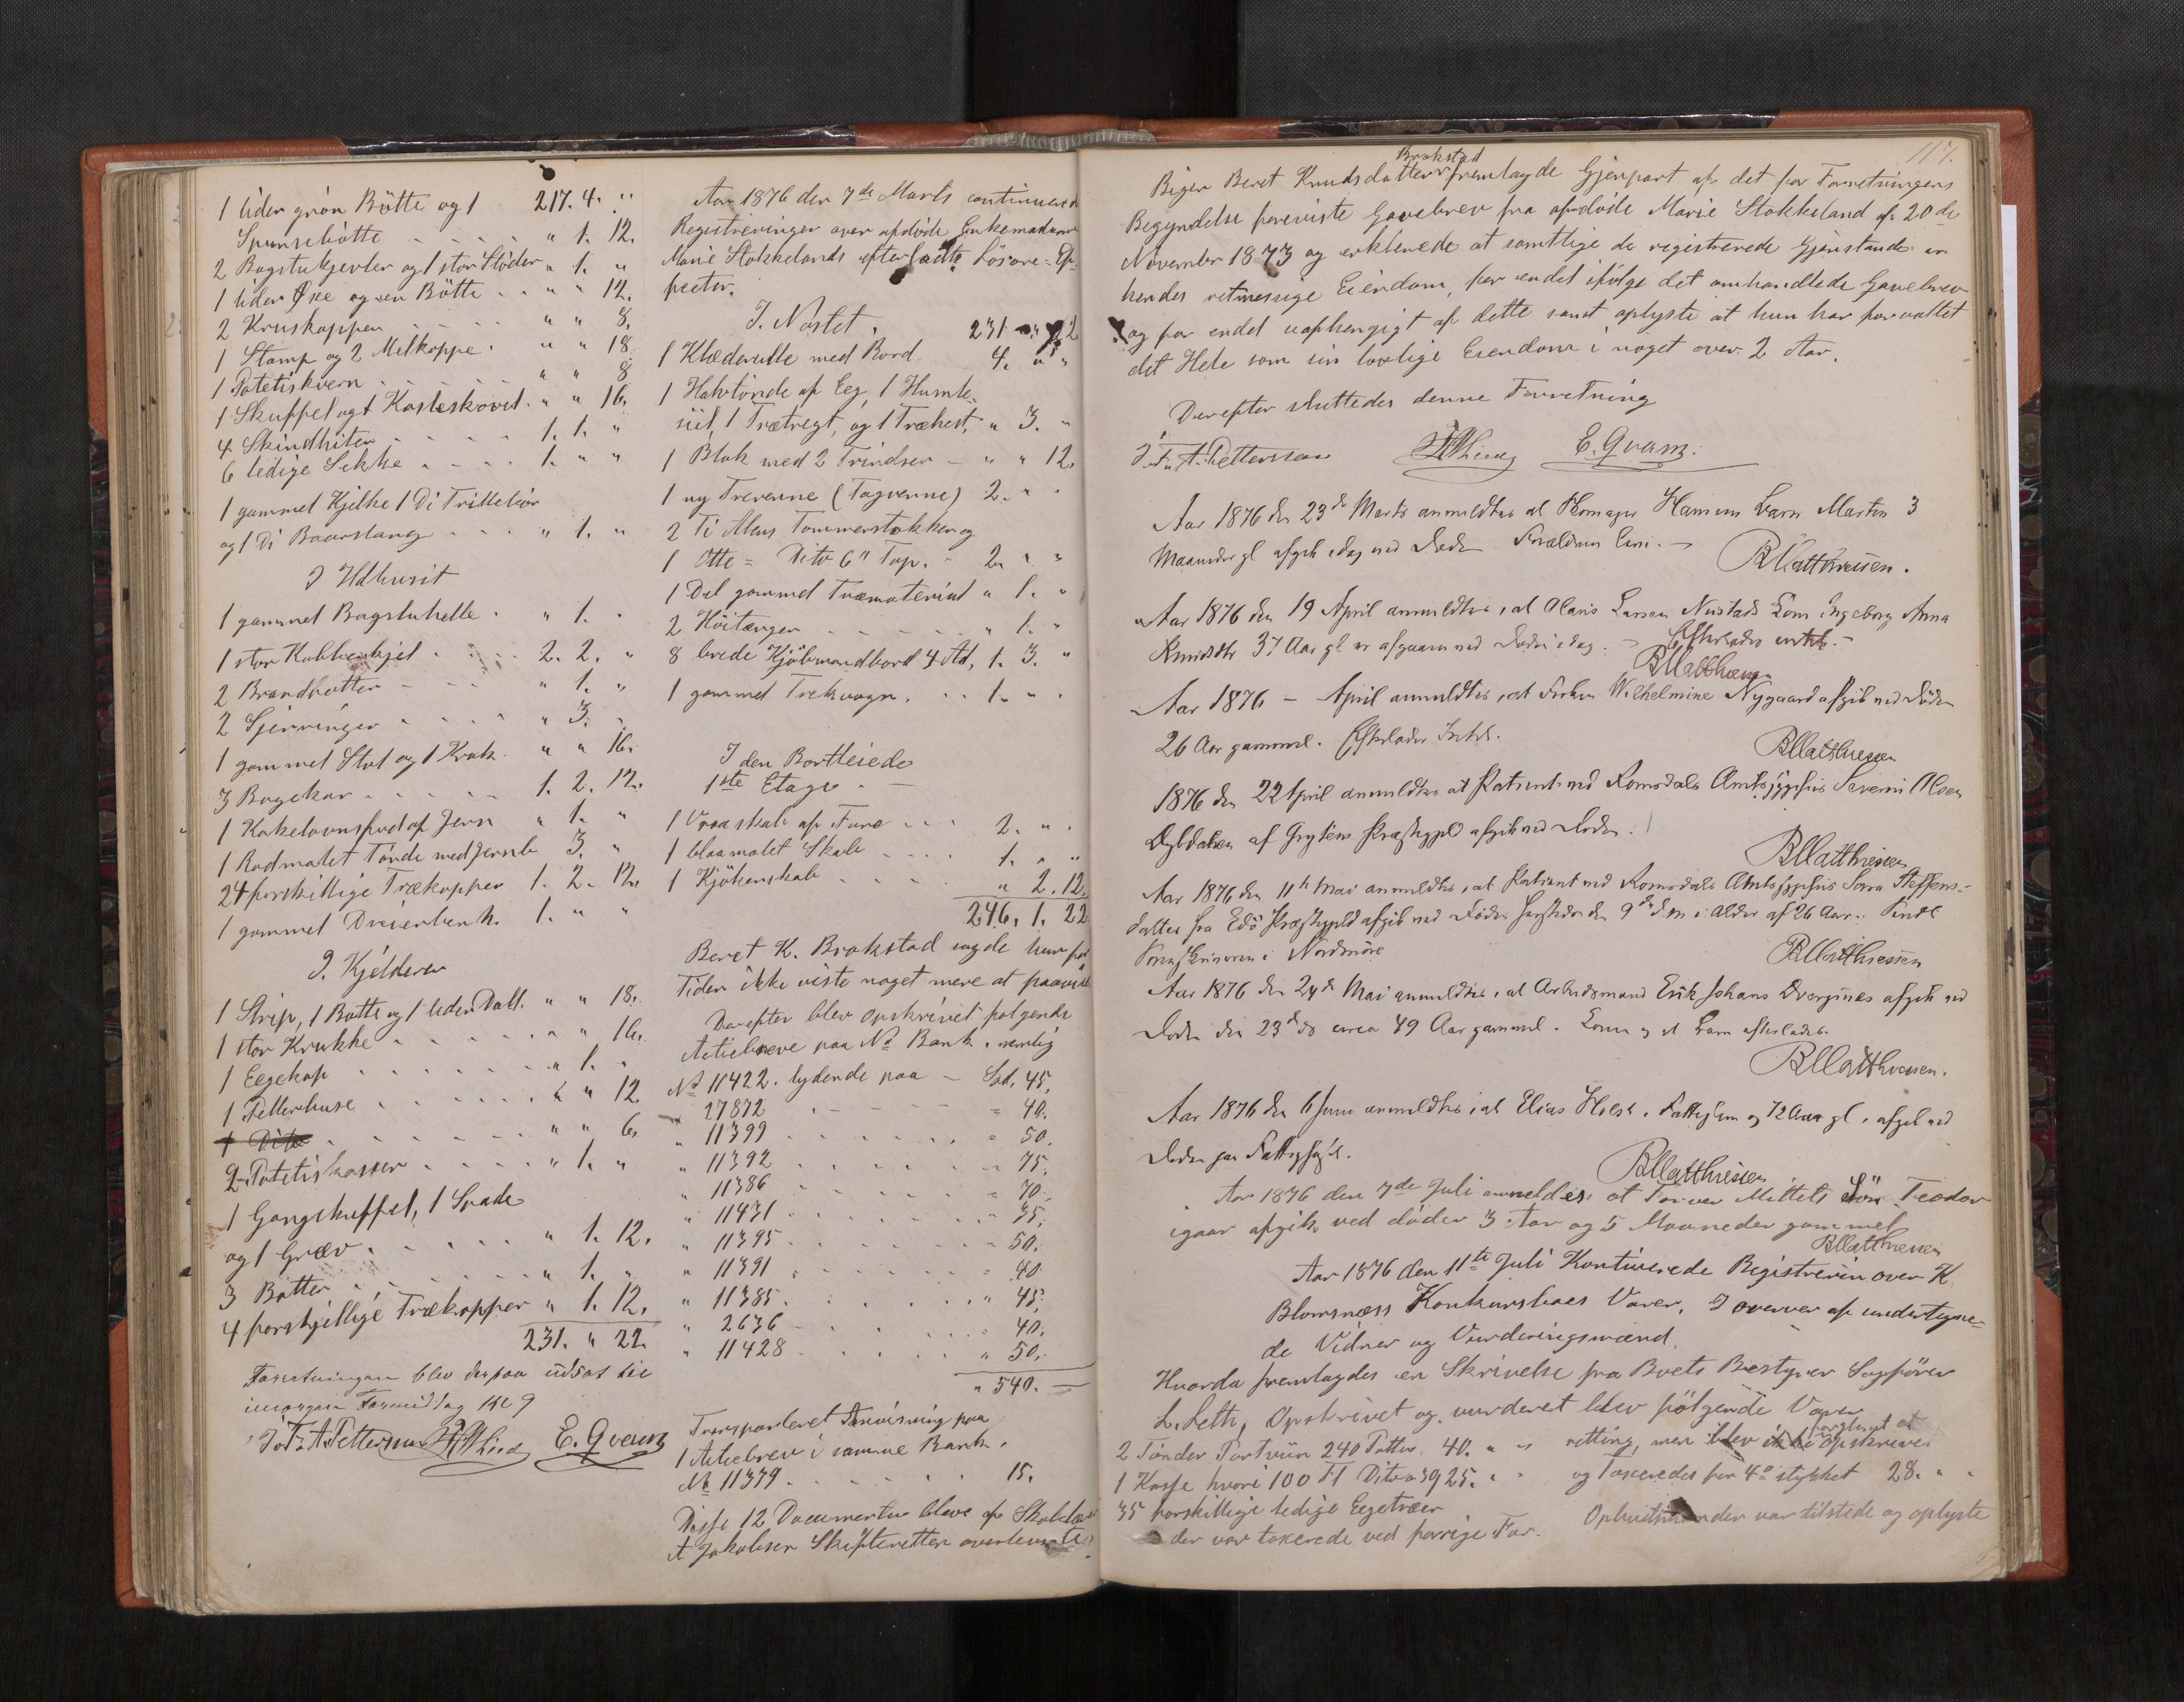 1 liden grön Bötte og 1 217. 4. "
Spunsebötte " 1. 12.
2 Bagstukjevler og 1 stor Stöder " 1. "
1 liden Öse og en Bötte " " 12.
2 Kruskopper " " 8.
1 Stamp og 2 Melkoppe " " 18
1 Potetiskvern " " 8
1 Skuffel og 1 Kasteskovel " " 16.
4 Skindhiter 1. 1. "
6 ledige Sekke 1. " "
1 gammel Kjelke 1 Di Trillebör
og 1 Di Baarstang " 1. "
I Ildhusit
1 gammel Bagstuhelle " 1. "
1 stor Kobberkjel 2. 2. "
2 Brandbötter " 1. "
2 Gjerringer " 3. "
1 gammel Stol og 1 Krak " " 16.
3 Bagekar 1. 2. 12.
1 Kakelovnsfod af Jern " 1. "
1 Rodmalet Tönde med Jernb 3. "
24 forskillige Trækopper 1. 2. 12.
1 gammel Dreierbenk 1. " "
I. Kjelderen
1 Strip, 1 Botte og 1 liden Dall. " " 18.
1 stor Krukke " " 16.
1 Eegekap " 1. "
1 Pellerhuse " " 12.
1 Dito " " 6.
2 Potetiskasser " 1. "
1 Gangskuffel, 1 Spade
og 1 Græv " 1. 12.
3 Bötter " 1. "
4 forskjellige Trækopper " 1. 12.
231. " 22.
Forretningen blev derpaa udsat til
imorgen Formiddag Kl 9
J. F. A. Petterson E. Qvam
Aar 1876 den 7de Marts continuered
Registreringer over afdöde Enkemadame
Marie Stokkelands efterladte Lösöre-Ef-
fecter.
I. Nöstet. 231 " 22
1 Klæderulle med Bord 4. " "
1 Halvtönde af Eeg, 1 Humle
siil, 1 Trætregt, og 1 Træhest, " 3. "
1 Blok med 2 Trindser " " 12.
1 ny Treverine (Tagrenne) 2. " "
2 Ti Alens Tommerstokker og
1 Otte = Dito 6" Top. 2. " "
1 Del gammel Træmaterial " 1. "
2 Höitænger " 1. "
8 brede Kjöbmandbord 4 Al, 1. 3. "
1 gammel Trekvogn. 1. " "
I den Bortleiede
1ste Etage.
1 Vraaskab af Fure 2. " "
1 blaamalet Skab 1. " "
1 Kjökenskab " 2. 12.
246. 1. 22
Beret K. Brokstad sagde hun for
Tiden ikke viste noget mere at paavise
Derefter blev opskrivet fölgende
Actiebreve paa No Bank, nemlig
No 11422. lydende paa Spd. 45.
" 27872 = 40.
" 11399 = 50.
" 11392 = 75.
" 11386 = 70.
" 11431 = 35.
" 11395 = 50.
" 11391 = 40
" 11385 " 45.
" 2636 40.
" 11428 " 50.
" 540.
Transporteret Anvisning paa
1 Actiebrev i samme Bank.
No 11379 15.
Disse 12 Documenter bleve af
A Jakobsen Skifteretten overleverte.
117.
Brokstad
Pigen Beret Knudsdatter fremlagde Gjenpart af det for Forretningens
Begyndelse foreviste Gavebrev fra afdöde Marie Stokkeland af 20de
November 1873 og erklærede at samtlige de registrerede Gjenstande er
hendes retmessige Eiendom, for endel ifölge det omhandlede Gavebrev
og for endel uafhengigt af dette samt oplyste at hun har forvaltet
det Hele som sin lovlige Eiendom i noget over 2 Aar.
Derefter sluttedes denne Forretning
J. F. A. Petterson E. Qvam.
Aar 1876 den 23de Marts anmeldtes at Skomager Hansens Barn Martin 3
Maaneder gl afgik idag ved Döden Forældrene leve.
BMatthiesen.
Aar 1876 den 19 April anmeldtes, at Hans Larsen Nustads Kone Ingeborg Anna
Knudsdtr 37 Aar gl er afgaaen ved Döden idag. Efterlader
BMatthiesen
Aar 1876 – April anmeldtes, at Fröken Wilhelmine Nygaard afgik ved Döden
26 Aar gammel. Efterlader
BMatthiesen
1876 den 22 April anmeldtes at Patient ved Romsdals Amtssygehus Severin Olsen
af Grytens Præstegjeld afgik ved Döden.
BMatthiesen
Aar 1876 den 11te Mai anmeldtes, at Patient ved Romsdals Amtssygehus Sara Steffens-
datter fra Edö Præstegjeld afgik ved Döden den 9de ds i Alder af 26 Aar.
i Nordmöre
BMatthiesen
Aar 1876 den 24de Mai anmeldtes, at Arbeidsmand Erik Johans afgik ved
Döden den 23de ds circa 49 Aar gammel. Kone og et Barn efterlades.
BMatthiesen.
Aar 1876 den 6 Juni anmeldtes, at Elias Holst, Fattiglem og 72 Aar gl, afgik ved
Döden paa
BMatthiesen
Aar 1876 den 7de Juli anmeldes at Farver Mittets Sön Teodor
igaar afgik ved döden 3 Aar og 5 Maaneder gammel
BMatthiesen
Aar 1876 den 11te Juli Kontinuerede Registrerin over K
Blomsnæss Konkursboes Varer, I overvær af undertegne-
de Vidner og Vurderingsmænd.
Hvorda fremlagdes en Skrivelse fra Boets Bestyrer Sagförer
L. Leth, Opskrivet og vurderet blev fölgende Varer
2 Tönder Portviin 240 Potter 40. " "
1 Kasse hvori 100 Fl Dito 25. " "
35 forskillige ledige Eegetræer
der var takerede ved forrige For-
retting, men blev ikke opskreve
og Taxeredes for 4 stykket 28. " "
Opbudsmanden var tilstede og oplyste